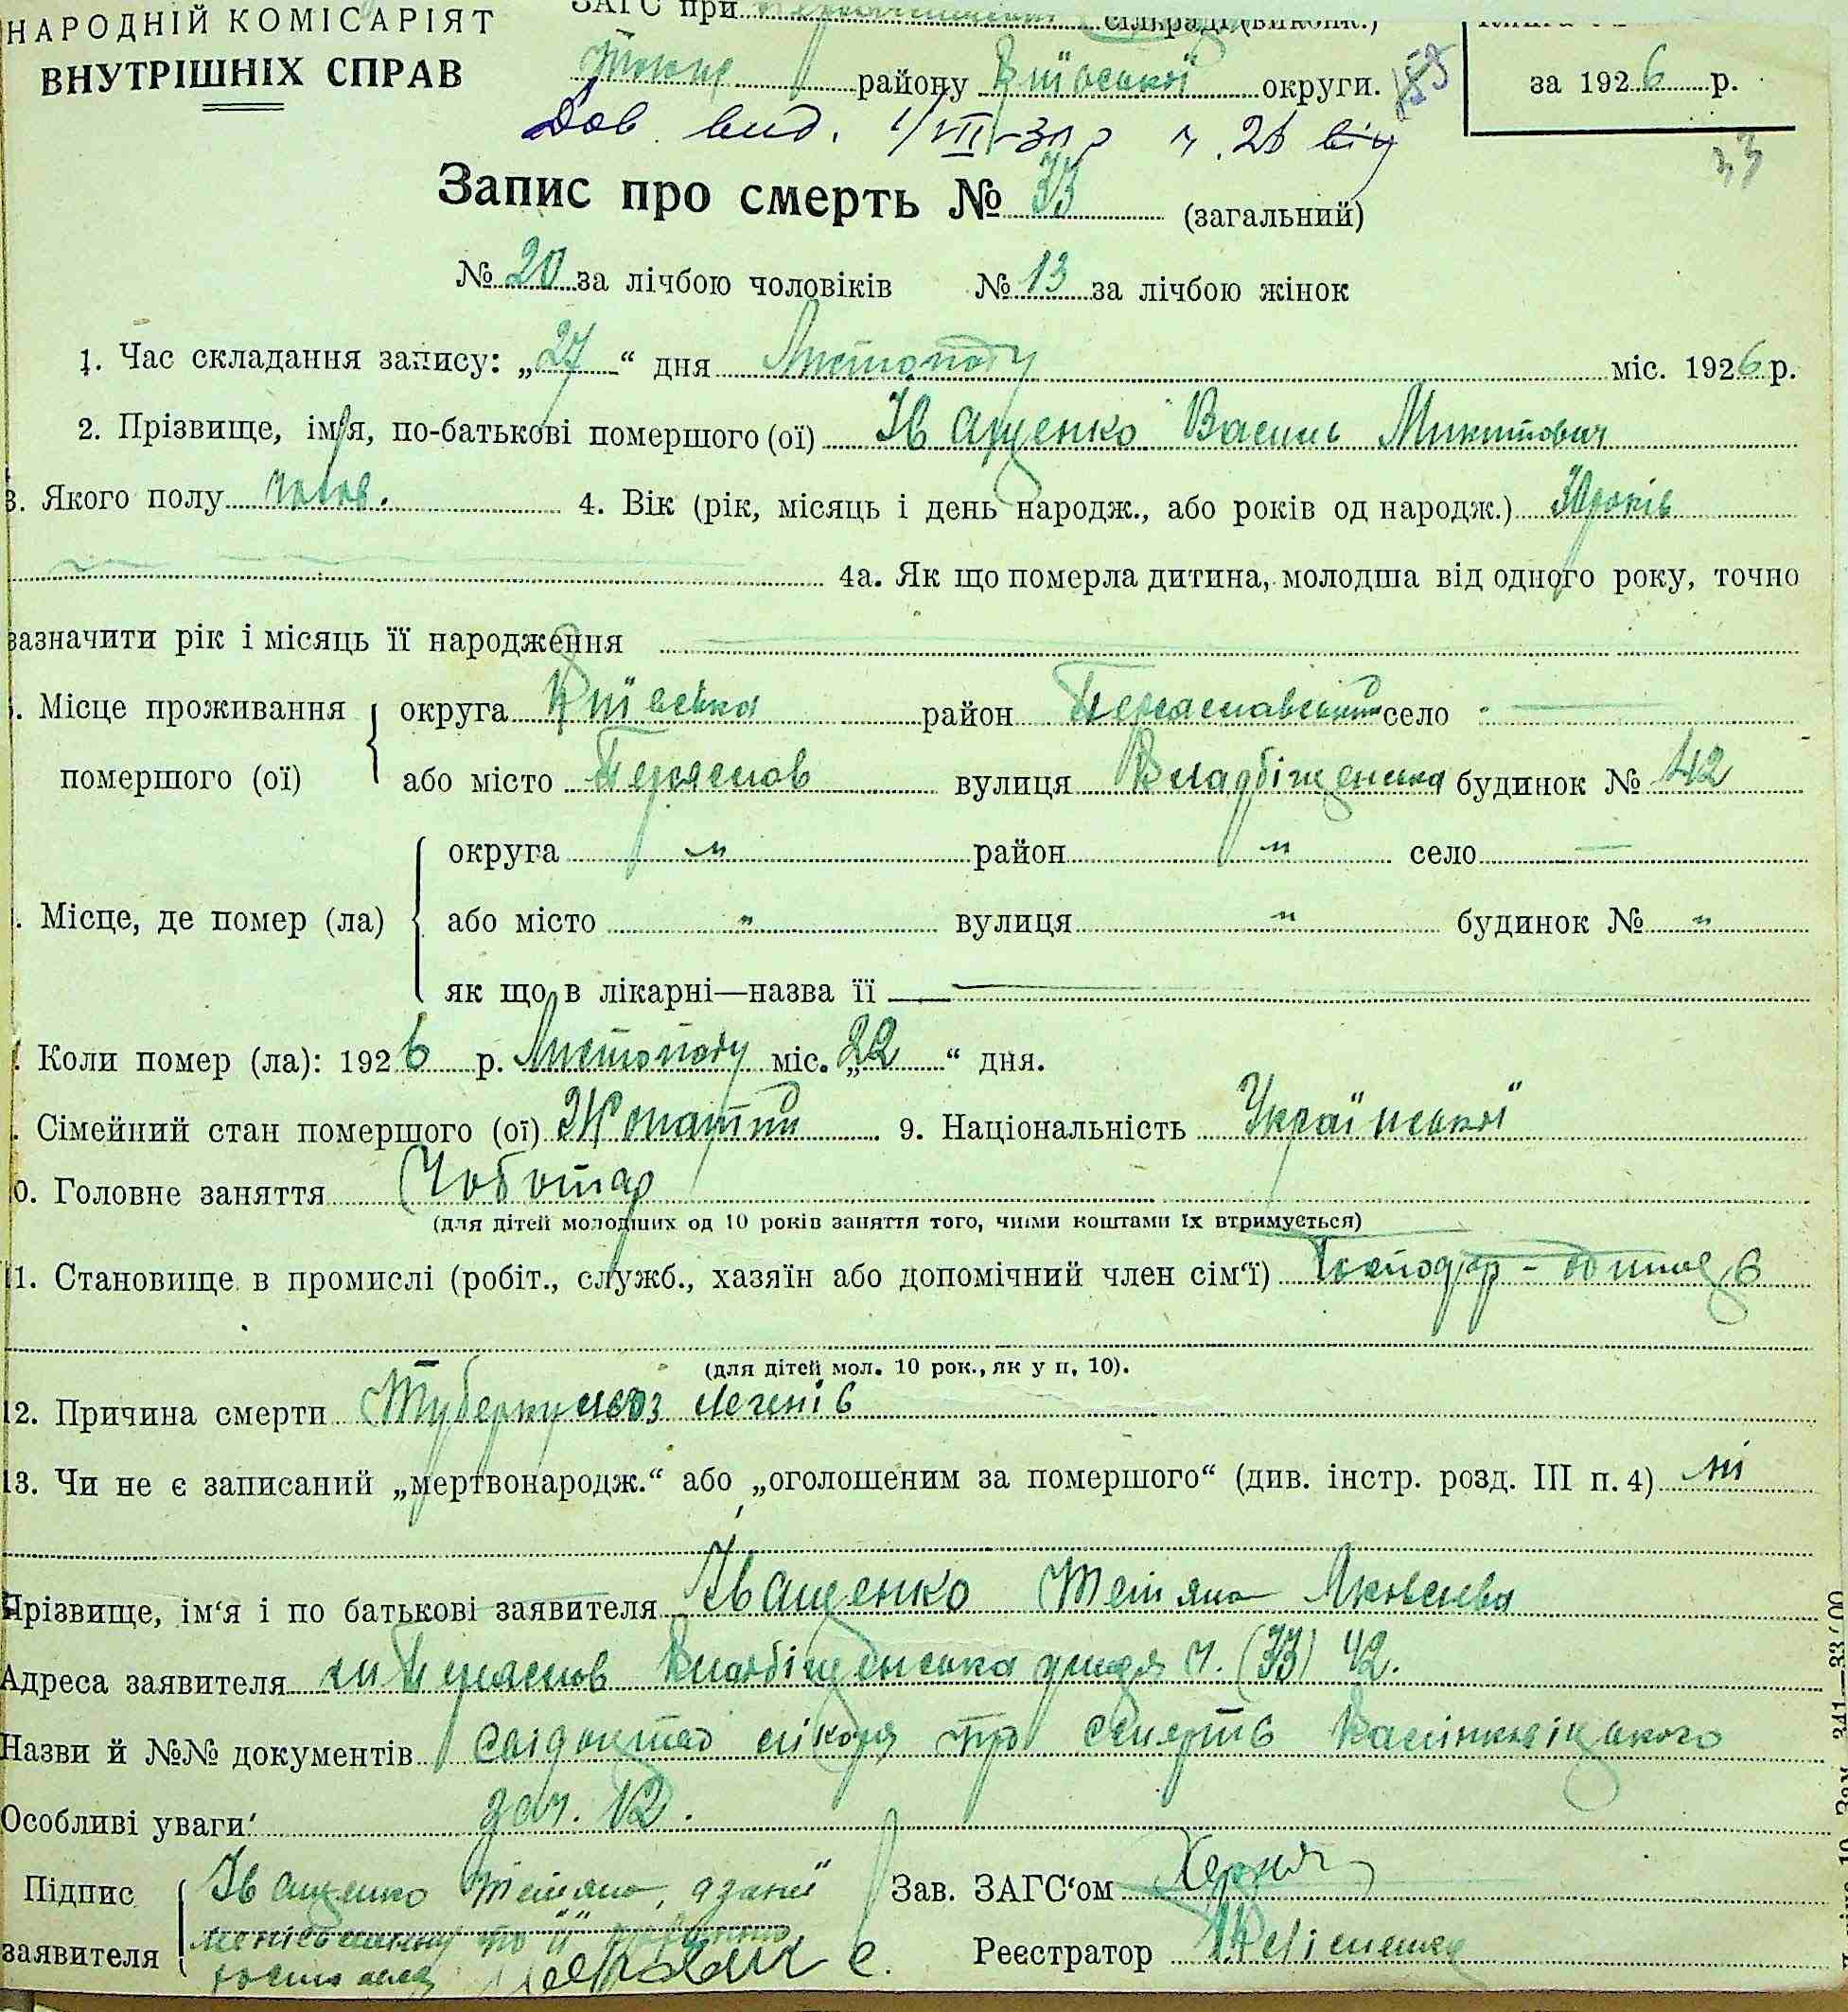 НАРОДНІЙ КОМІСАРІЯТ
ВНУТРІШНІХ СПРАВ
ЗАГС при сільраді (виконк.)
району Київської округи.
за 1926 р.
Дов. вид. 1/VII-30 р ч. 26
33
Запис про смерть № 33 (загальний)
№ 20 за лічбою чоловіків № 13 за лічбою жінок
1. Час складання запису: „27“ дня Листопаду міс. 1926 р.
2. Прізвище, ім'я, по-батькові помершого (ої) Іващенко Василь Микитович
3. Якого полу чолов. 4. Вік (рік, місяць і день народж., або років од народж.) 30 років
4а. Як що померла дитина, молодша від одного року, точно
зазначити рік і місяць її народження
. Місце проживання помершого (ої) округа Київська район Переяславський село —
або місто Переяслов вулиця будинок № 42
. Місце, де помер (ла) округа „ район „ село —
або місто „ вулиця „ будинок № „
як що в лікарні—назва її —
. Коли помер (ла): 1926 р. Листопаду міс. „22“ дня.
. Сімейний стан помершого (ої) Жонатий 9. Національність Української
10. Головне заняття Чоботар
(для дітей молодших од 10 років заняття того, чиїми коштами їх втримується)
11. Становище в промислі (робіт., служб., хазяїн або допомічний член сім'ї) Господар - одинець
(для дітей мол. 10 рок., як у п. 10).
12. Причина смерти Туберкульоз легенів
13. Чи не є записаний „мертвонародж.“ або „оголошеним за помершого“ (див. інстр. розд. III п. 4) ні
Прізвище, ім'я і по батькові заявителя Іващенко Тетяна Яковлева
Адреса заявителя м Переяслов вулиця ч. (33) 42.
Назви й №№ документів свідоцтво лікаря про смерть
Особливі уваги: зач. 12.
Підпис заявителя Іващенко Тетяна, а за неї
неписьменну по її
Зав. ЗАГС'ом
Реєстратор